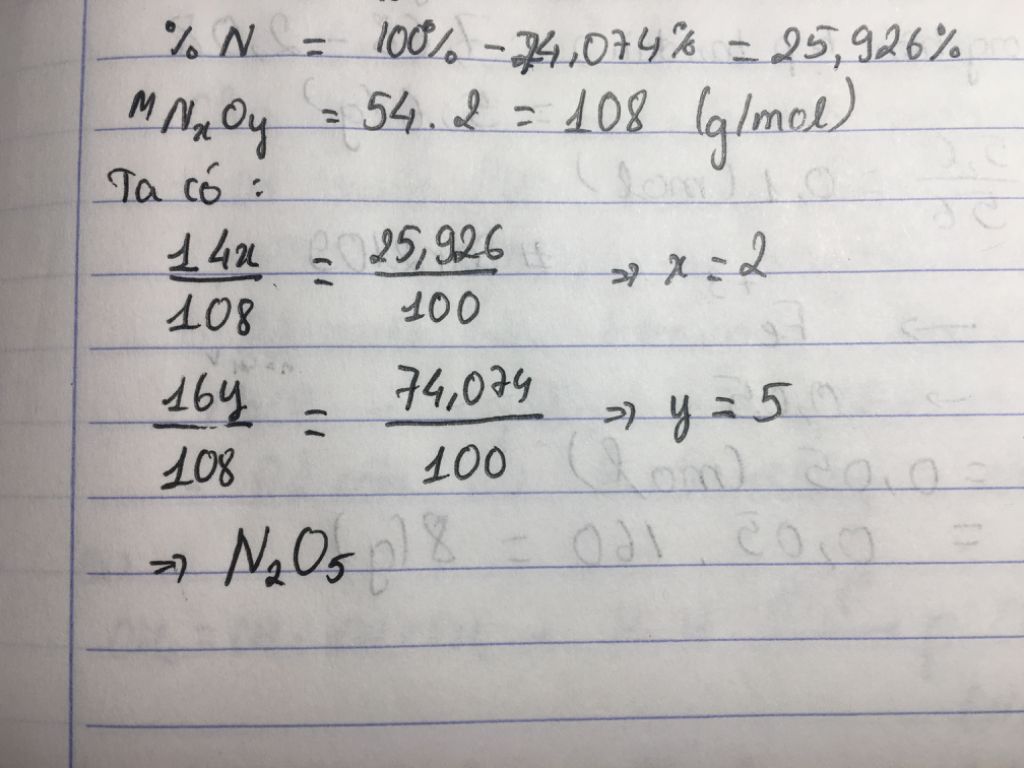 % N = 100% - 74,074% = 25,926%
M NxOy = 54 . 2 = 108 (g/mol)
Ta có :
14x/108 = 25,926/100 => x = 2
16y/108 = 74,074/100 => y = 5
=> N2O5